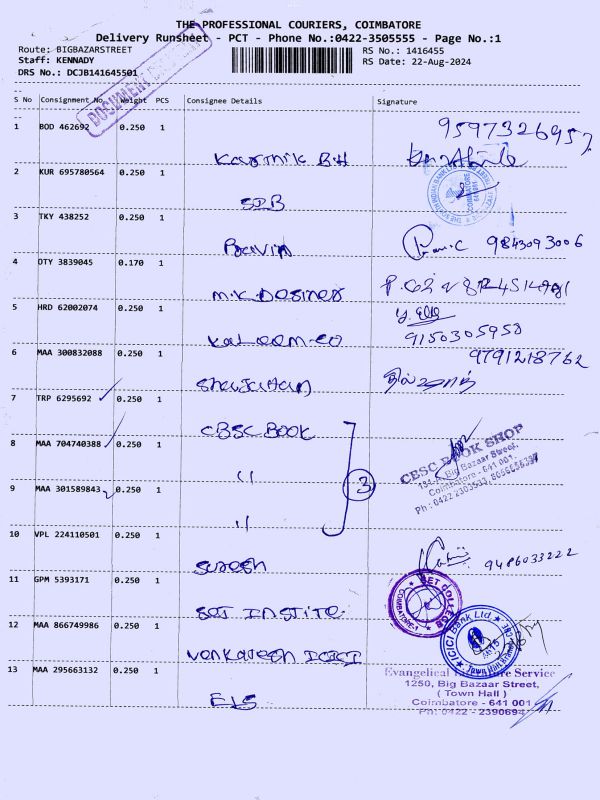 THE PROFESSIONAL COURIERS, COIMBATORE
Delivery Runsheet - PCT - Phone No.:0422-3505555 - Page No.:1
Route: BIGBAZARSTREET RS No.: 1416455
Staff: KENNADY RS Date: 22-Aug-2024
DRS No.: DCJB141645501
DOCUMENT
S No Consignment No. Weight PCS Consignee Details Signature
9597326957
1 BOD 462692 0.250 1
Karthik B.H
2 KUR 695780564 0.250 1
SIB
COIMBATORE
3 TKY 438252 0.250 1
Pravin 9843093006
4 OTY 3839045 0.170 1
M.K. Designer
5 HRD 62002074 0.250 1
Kaleem-co 9150305958
6 MAA 300832088 0.250 1 9791218762
7 TRP 6295692 0.250 1
CBSC BOOK
8 MAA 704740388 0.250 1
" 3
CBSC BOOK SHOP
Big Bazaar Street,
Coimbatore - 641 001.
9 MAA 301589843 0.250 1
"
10 VPL 224110501 0.250 1
Suresh 9486033222
11 GPM 5393171 0.250 1
SET INSTITE.
SET COLLEGE
COIMBATORE-1
12 MAA 866749986 0.250 1
Venkatesh ICICI
ICICI Bank Ltd.
Town Hall Branch
13 MAA 295663132 0.250 1
ELS
Evangelical Literature Service
1250, Big Bazaar Street,
( Town Hall )
Coimbatore - 641 001
Ph: 0422 - 2390694